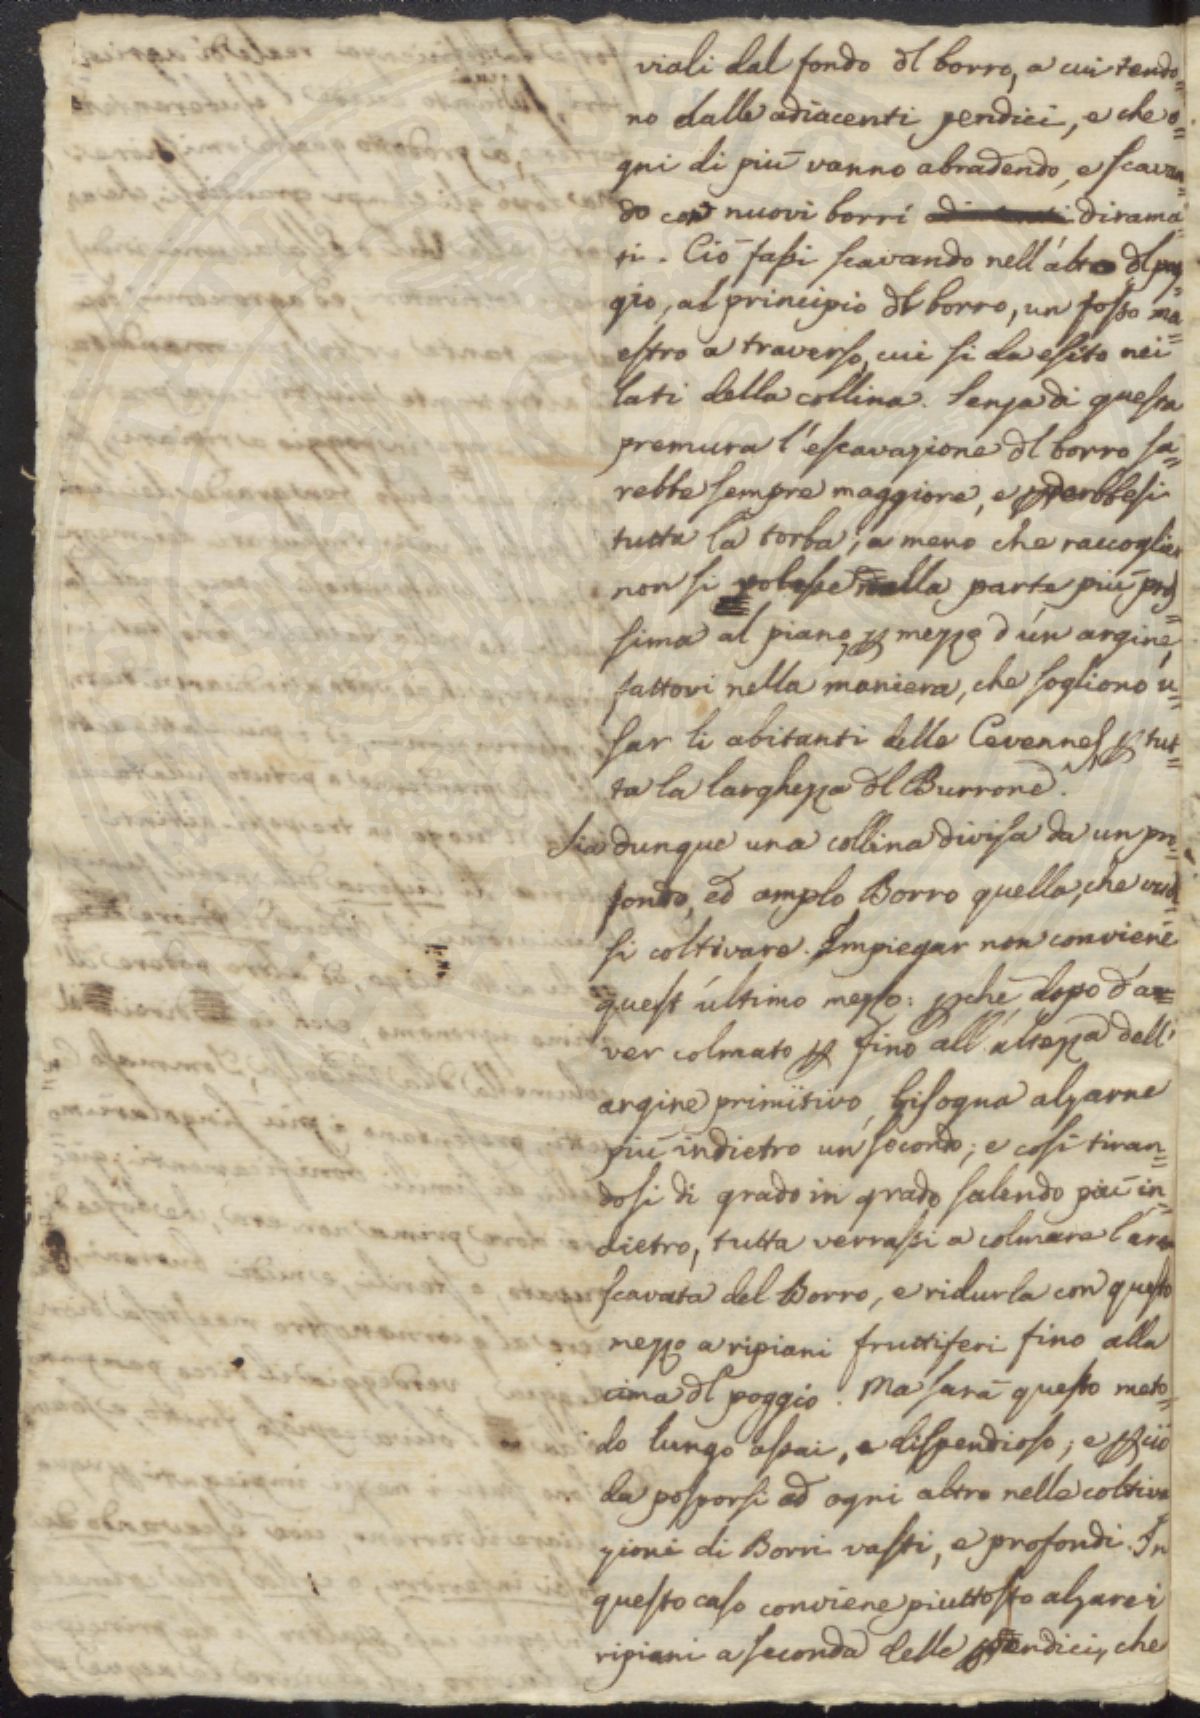 viali dal fondo dl borro, a cui tendo=
no dalle adiacenti pendici, e che o=
gni di più vanno abradendo, e scavan=
do con nuovi borri dirama=
ti. Ciò fassi scavando nell'alto dl pog=
gio, al principio dl borro, un fosso ma=
estro a traverso, cui si da esito nei
lati della collina. Senza di questa
premura l'escavazione dl borro sa=
rebbe sempre maggiore, e perderebbesi
tutta la torba; a meno che raccoglier
non si volesse nella parte più pros=
sima al piano, p mezzo d'un argine,
fattovi nella maniera, che sogliono u=
sar li abitanti delle Cevennes p tut=
ta la larghezza dl Burrone.
Sia dunque una collina divisa da un pro=
fondo, ed amplo Borro quella, che vuol=
si coltivare. Impiegar non conviene
quest'ultimo mezzo: pchè dopo d'a=
ver colmato p fino all'altezza dell'
argine primiitivo, bisogna alzarne
più indietro un secondo; e così tiran=
dosi di grado in grado salendo più in=
dietro, tutta verrassi a colmare l'area
scavata del Borro, e ridurla con questo
mezzo a ripiani fruttiferi fino alla
cima dl poggio. Ma sarà questo meto=
do lungo assai, e dispendioso; e pciò
da posporsi ad ogni altro nelle coltiva
zioni di Borri vasti, e profondi. In
questo caso conviene piuttosto alzare i
ripiani a seconda delle pendici, che